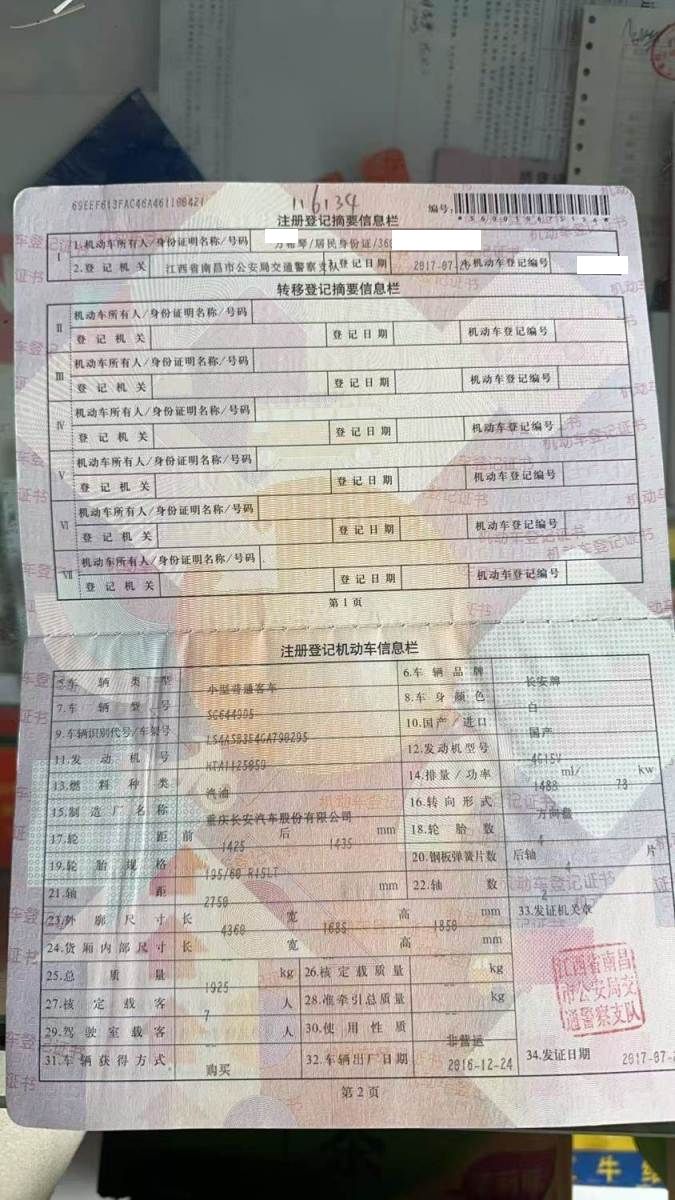 69EEF613FAC46A461108421
116134
编号:
注册登记摘要信息栏
I 1.机动车所有人/身份证明名称/号码 /居民身份证/36
2.登记机关 江西省南昌市公安局交通警察支队 3.登记日期 2017-07- 4.机动车登记编号
转移登记摘要信息栏
II 机动车所有人/身份证明名称/号码
登记机关 登记日期 机动车登记编号
III 机动车所有人/身份证明名称/号码
登记机关 登记日期 机动车登记编号
IV 机动车所有人/身份证明名称/号码
登记机关 登记日期 机动车登记编号
V 机动车所有人/身份证明名称/号码
登记机关 登记日期 机动车登记编号
VI 机动车所有人/身份证明名称/号码
登记机关 登记日期 机动车登记编号
VII 机动车所有人/身份证明名称/号码
登记机关 登记日期 机动车登记编号
第1页
注册登记机动车信息栏
5.车辆类型 小型普通客车 6.车辆品牌 长安牌
7.车辆型号 8.车身颜色 白
9.车辆识别代号/车架号 LS4ASB3E4GA798295 10.国产/进口 国产
11.发动机号 12.发动机型号
13.燃料种类 汽油 14.排量/功率 ml/ kw
15.制造厂名称 重庆长安汽车股份有限公司 16.转向形式 方向盘
17.轮距 前 1425 后 1435 mm 18.轮胎数 4
19.轮胎规格 195/60 R15LT 20.钢板弹簧片数 后轴 片
21.轴距 2750 mm 22.轴数 2
23.外廓尺寸 长 4360 宽 1685 高 1850 mm 33.发证机关章
24.货厢内部尺寸 长 宽 高 mm
25.总质量 1925 kg 26.核定载质量 kg
27.核定载客 7 人 28.准牵引总质量 kg
29.驾驶室载客 人 30.使用性质 非营运
31.车辆获得方式 购买 32.车辆出厂日期 2016-12-24 34.发证日期 2017-07-
江西省南昌
市公安局交
通警察支队
第2页